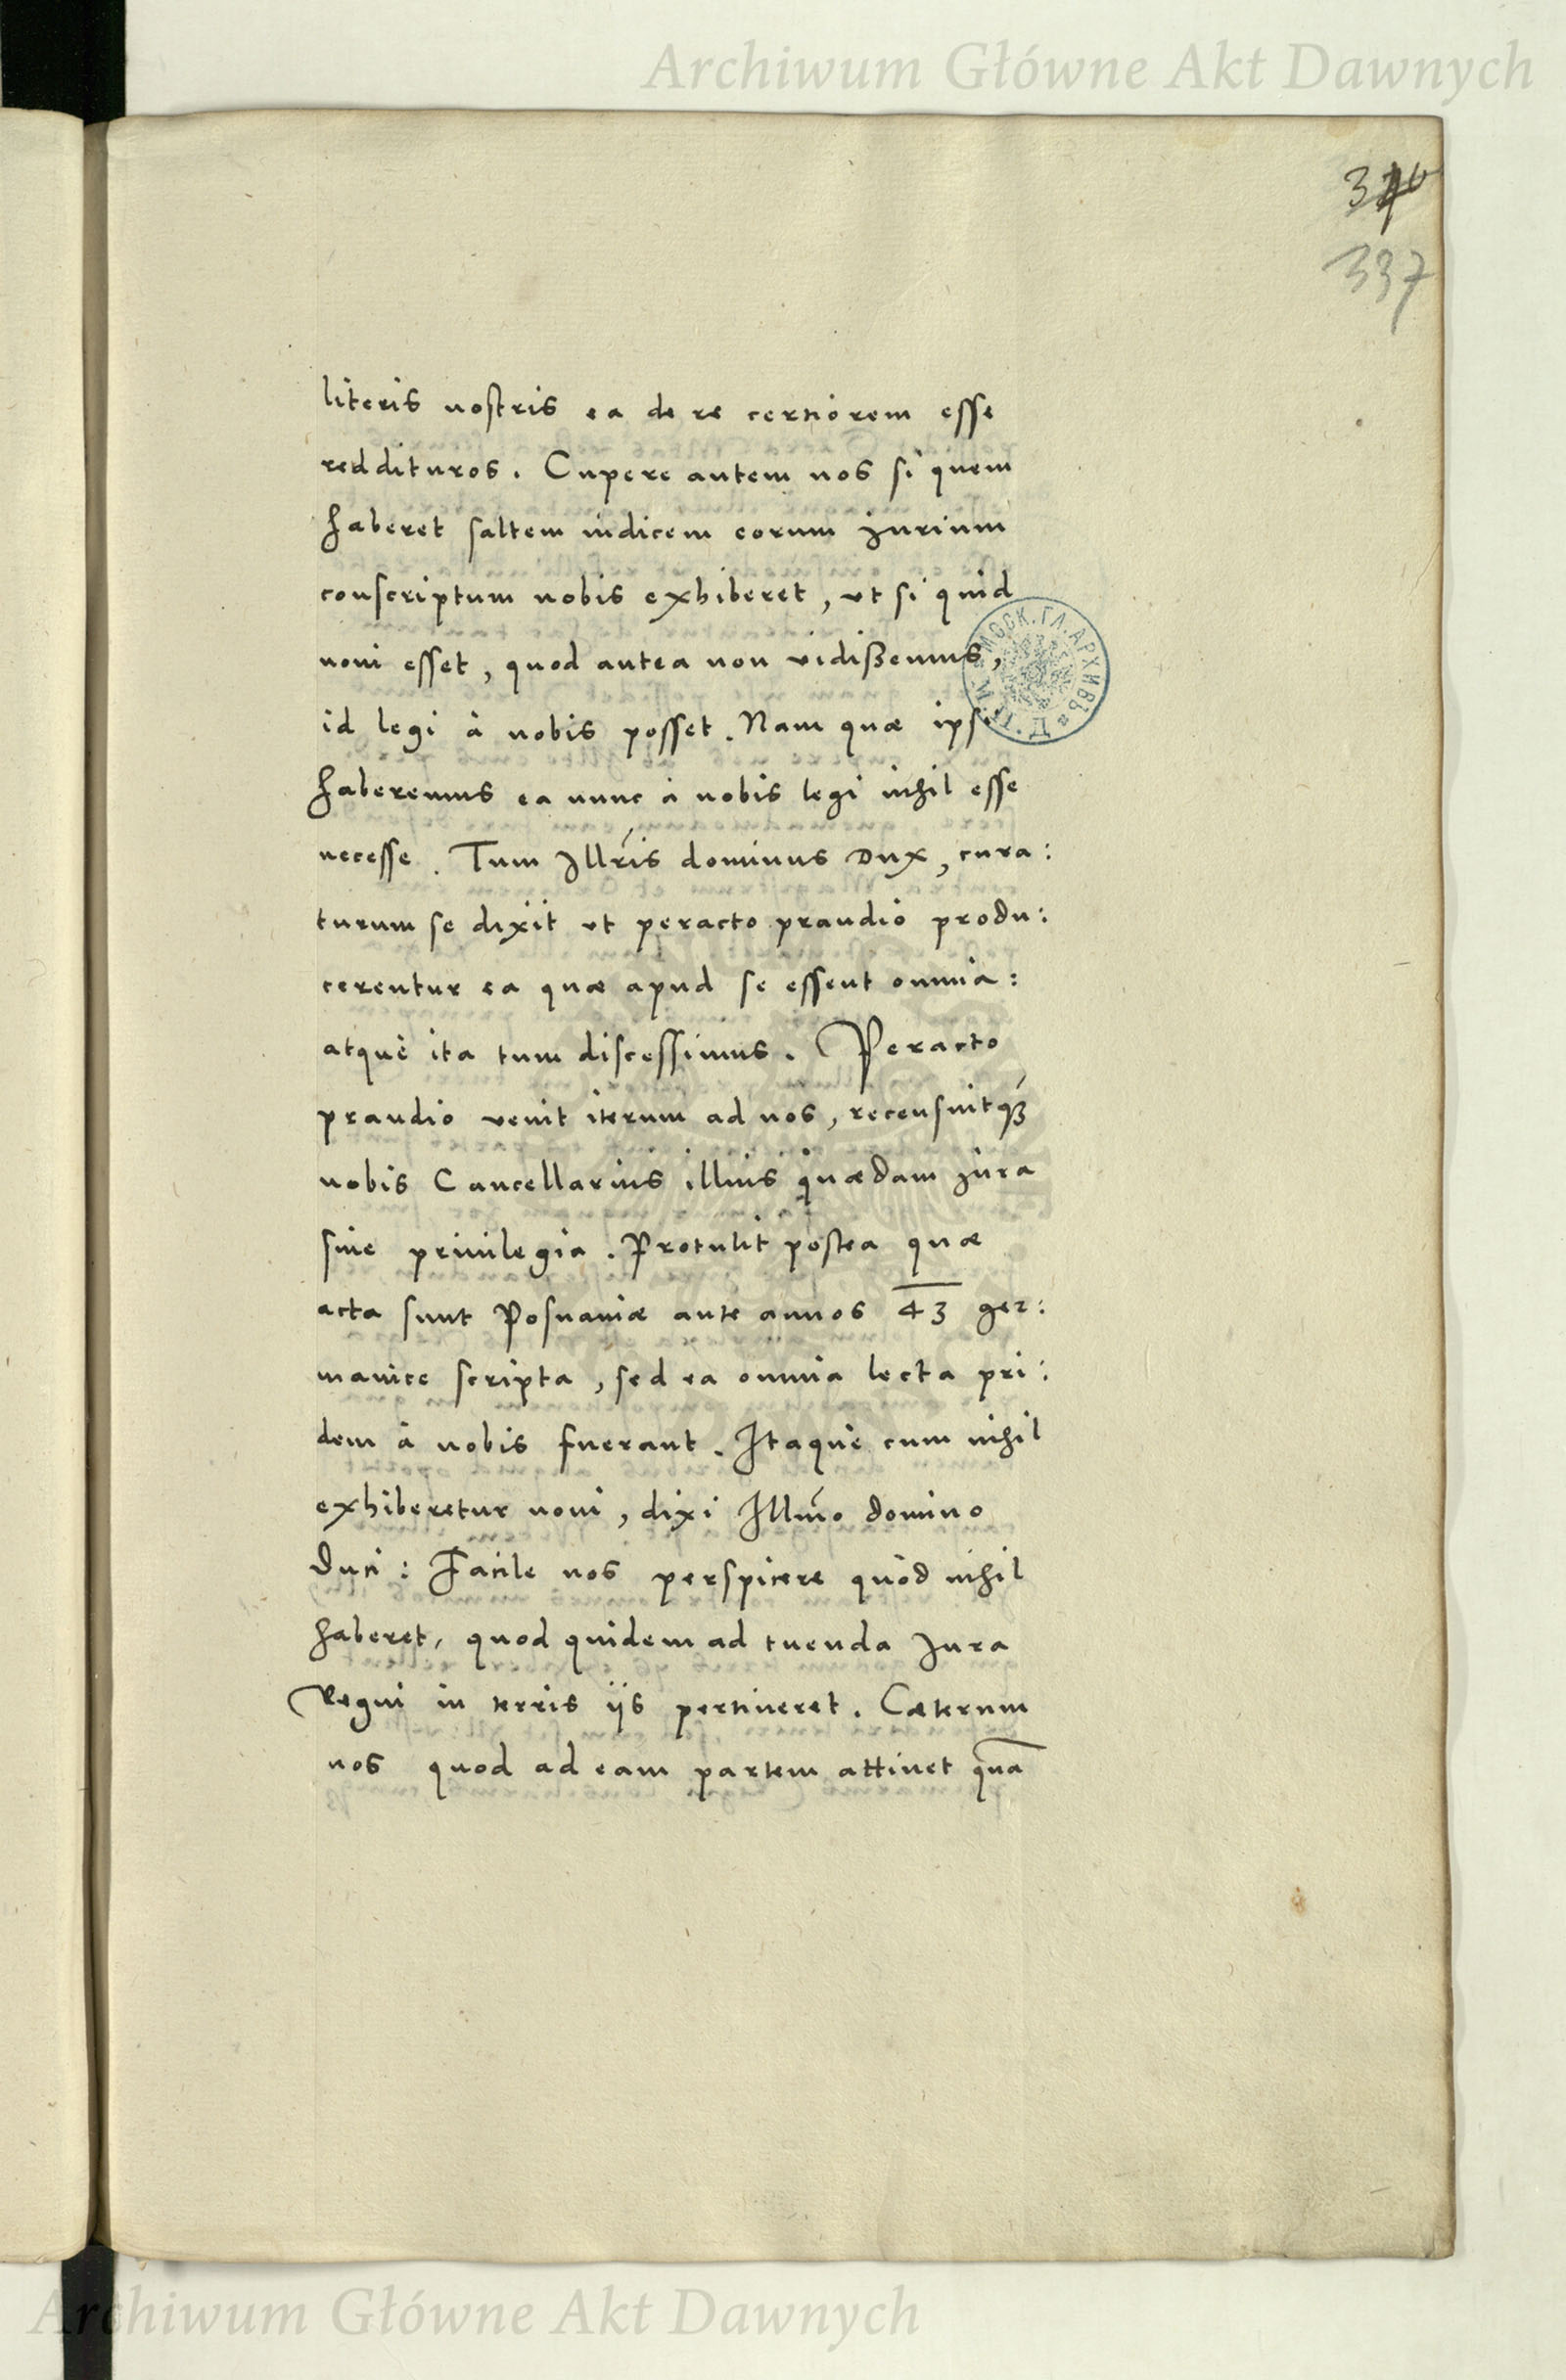 Archiwum Główne Akt Dawnych
337
literis nostris ea de re certiorem esse
reddituros. Cupere autem nos si quem
haberet saltem indicem eorum jurium
conscriptum nobis exhiberet, ut si quid
novi esset, quod antea non vidißemus,
id legi à nobis posset. Nam quæ ipsi
haberemus ea nunc à nobis legi nihil esse
necesse. Tum Illris dominus Dux, cura:
turum se dixit ut peracto prandio produ:
cerentur ea quæ apud se essent omnia:
atque ita tum discessimus. Peracto
prandio venit iterum ad nos, recensuitq3
nobis Cancellarius illius quædam jura
sive privilegia. Protulit postea quæ
acta sunt Posnaniæ ante annos 43 ger:
manice scripta, sed ea omnia lecta pri:
dem à nobis fuerant. Itaque cum nihil
exhiberetur novi, dixi Illmo domino
Duci: Facile nos perspicere quòd nihil
haberet, quod quidem ad tuenda Jura
Regni in terris ijs pertineret. Cæterum
nos quod ad eam partem attinet quā
Archiwum Główne Akt Dawnych